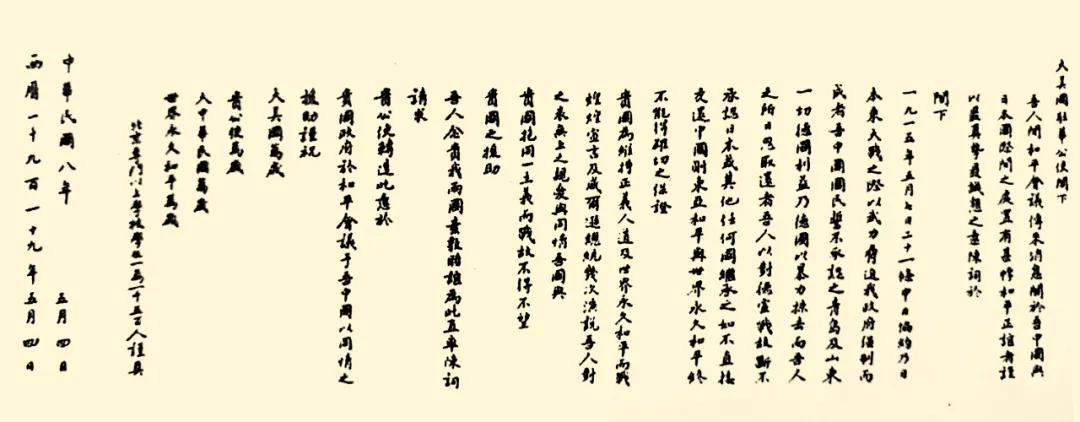 大美國駐華公使閣下
吾人聞和平會議傳來消息關於吾中國與
日本國際間之處置有甚悖和平正誼者謹
以最真摯最誠懇之意陳詞於
閣下
一九一五年五月七日二十一條中日協約乃日
本乘大戰之際以武力脅迫我政府強制而
成者吾中國國民誓不承認之青島及山東
一切德國利益乃德國以暴力掠去而吾人
之所日思取還者吾人以對德宣戰故斷不
承認日本或其他任何國繼承之如不直接
交還中國則東亞和平與世界永久和平終
不能得確切之保證
貴國為維持正義人道及世界永久和平而戰
煌煌宣言及威爾遜總統幾次演說吾人對
之表無上之親愛與同情吾國與
貴國抱同一主義而戰故不得不望
貴國之援助
吾人念貴我兩國素敦睦誼為此直率陳詞
請求
貴公使轉達此意於
貴國政府於和平會議予吾中國以同情之
援助謹祝
大美國萬歲
貴公使萬歲
大中華民國萬歲
世界永久和平萬歲
北京專門以上學校學生一萬一千五百人謹具
中華民國八年 五月四日
西曆一千九百一十九年五月四日